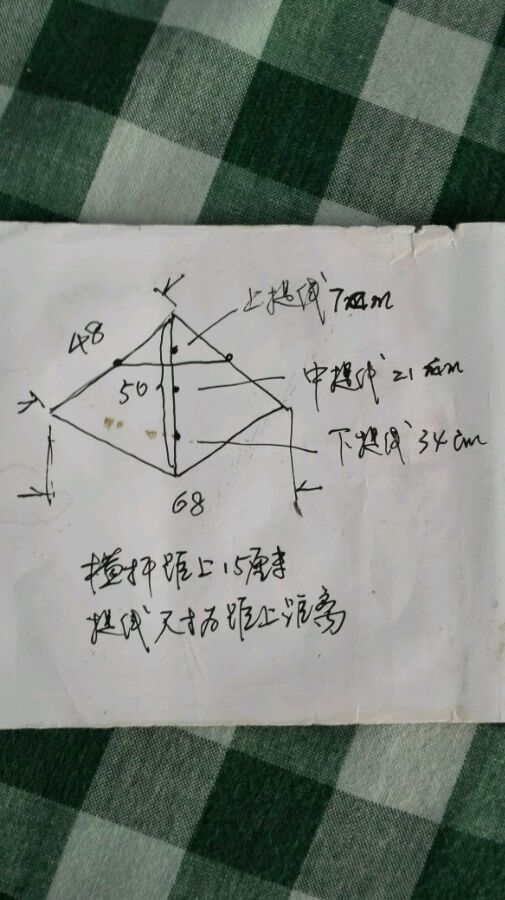 上提线 7cm
48
50
中提线 21cm
下提线 34cm
68
横杆距上15厘米
提线尺寸为距上距离